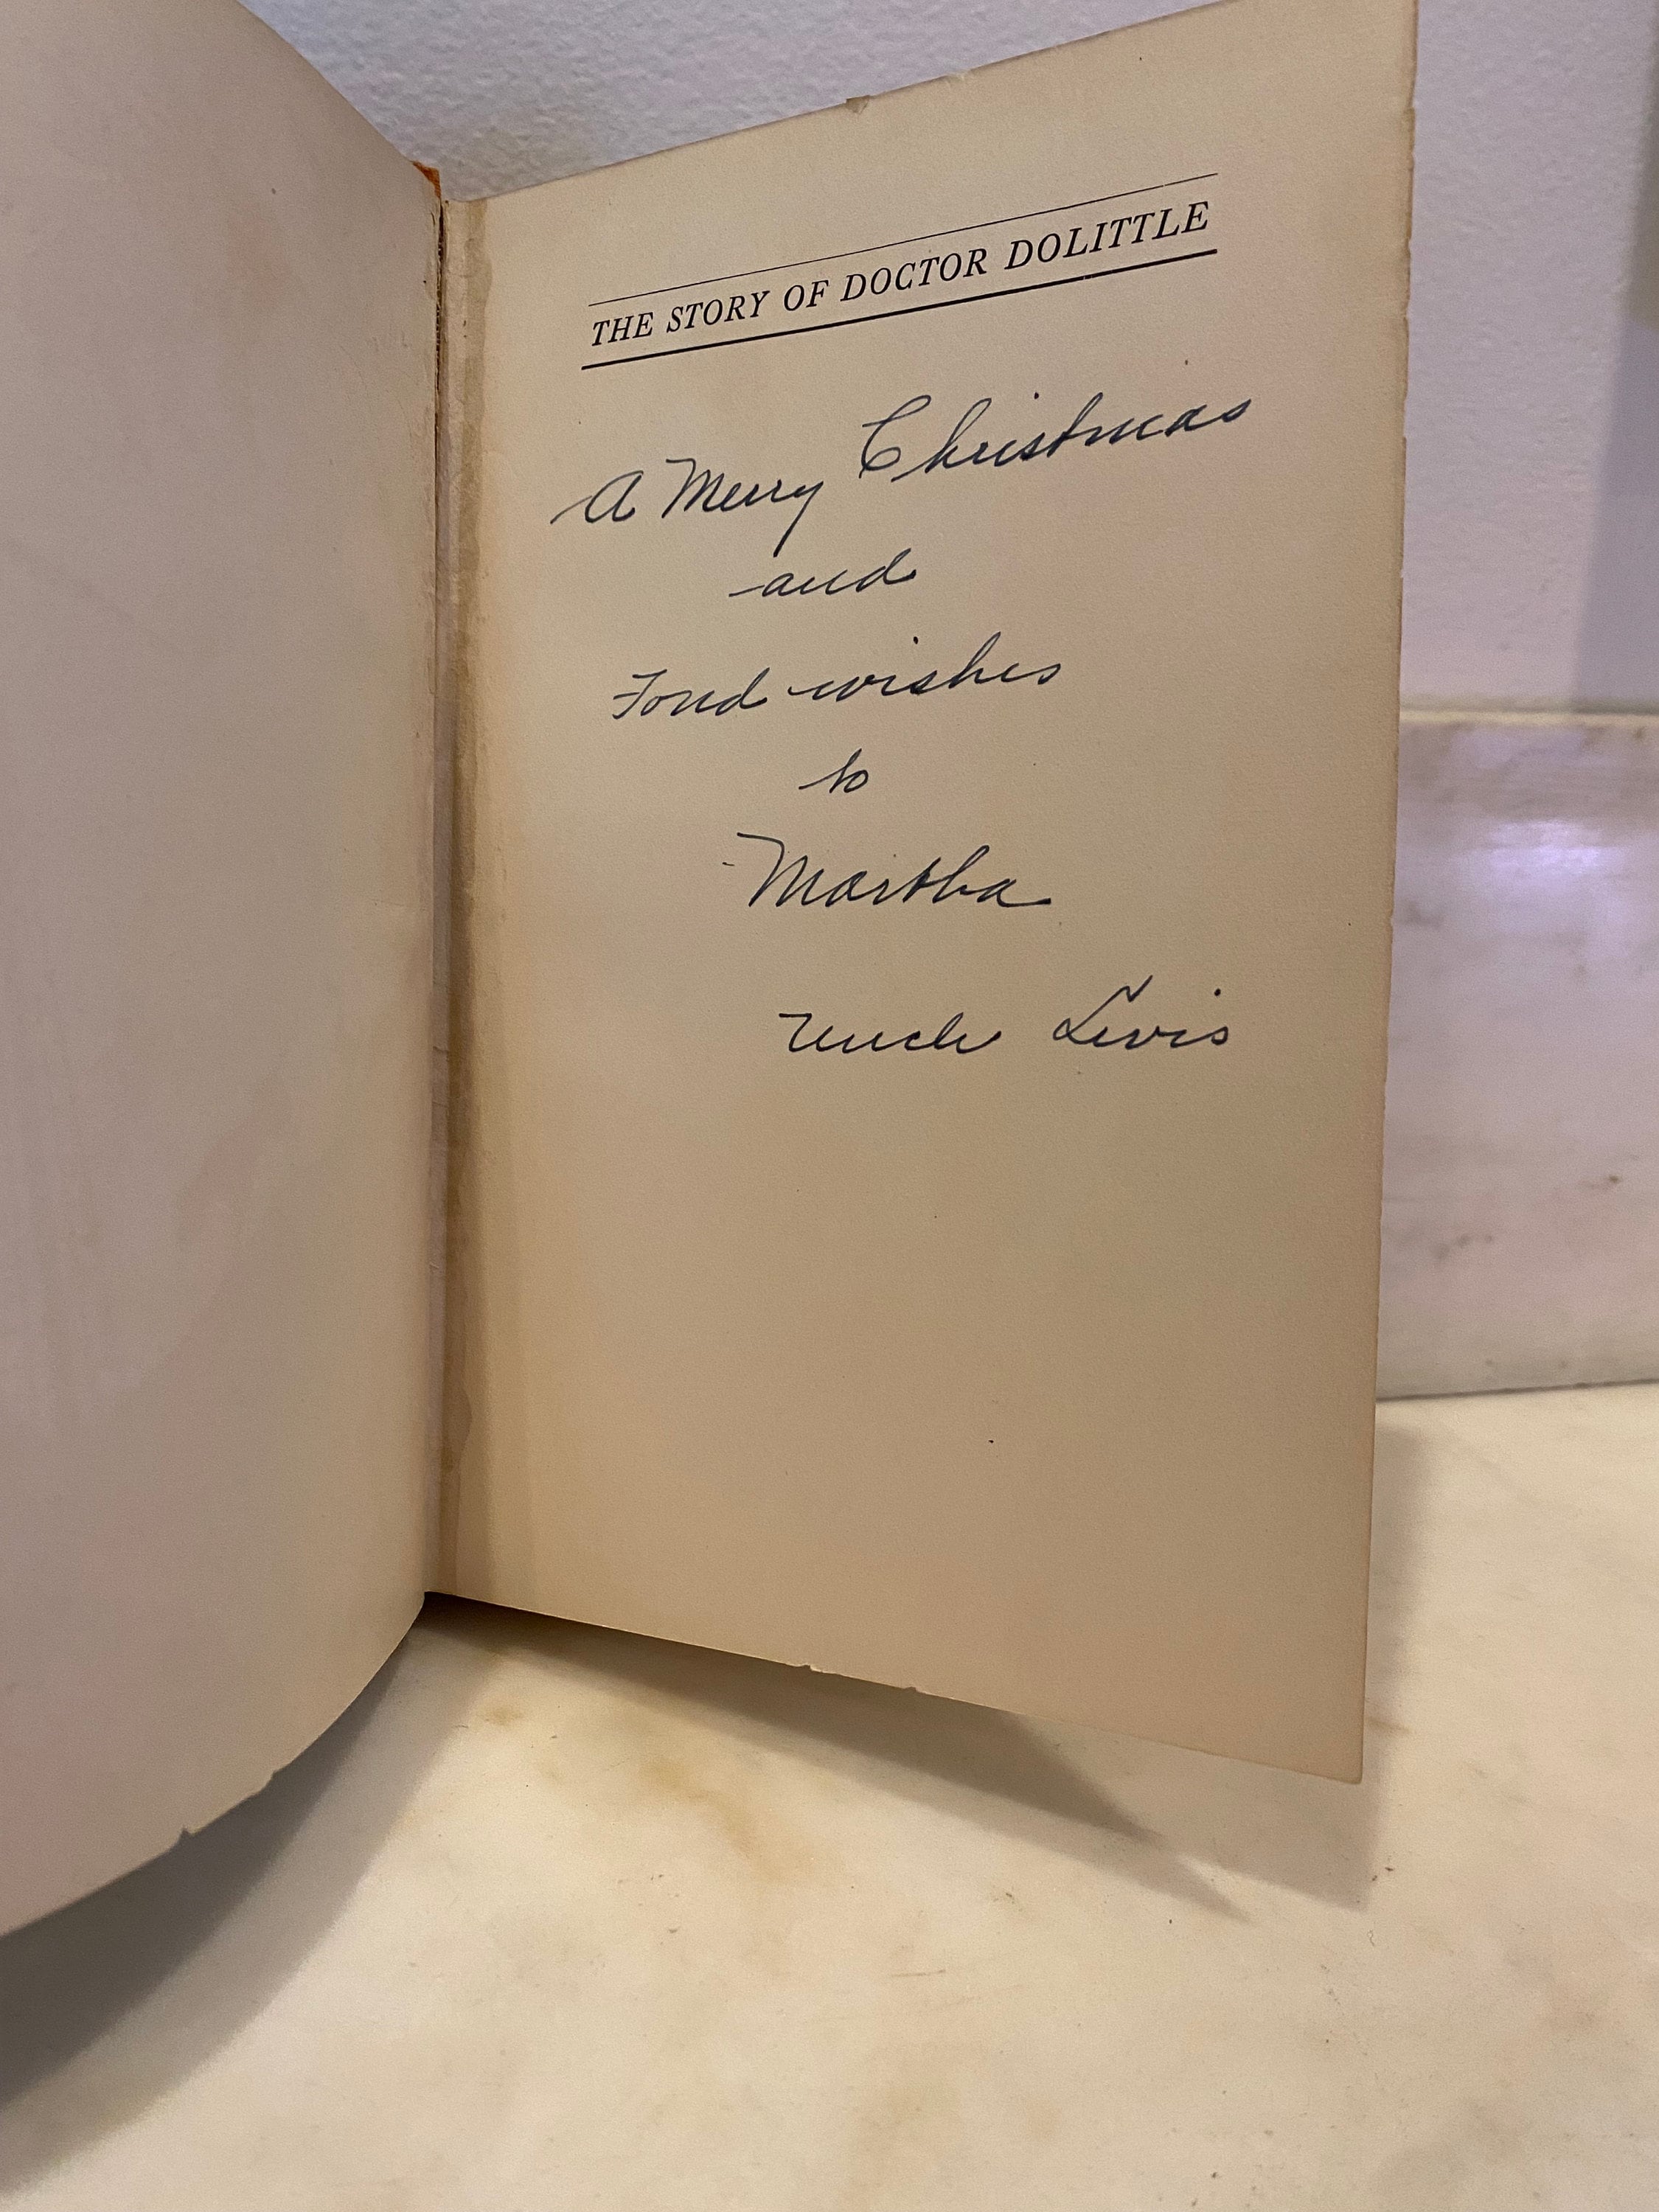 THE STORY OF DOCTOR DOLITTLE
A Merry Christmas
and
Fond wishes
to
Martha
Uncle Levis